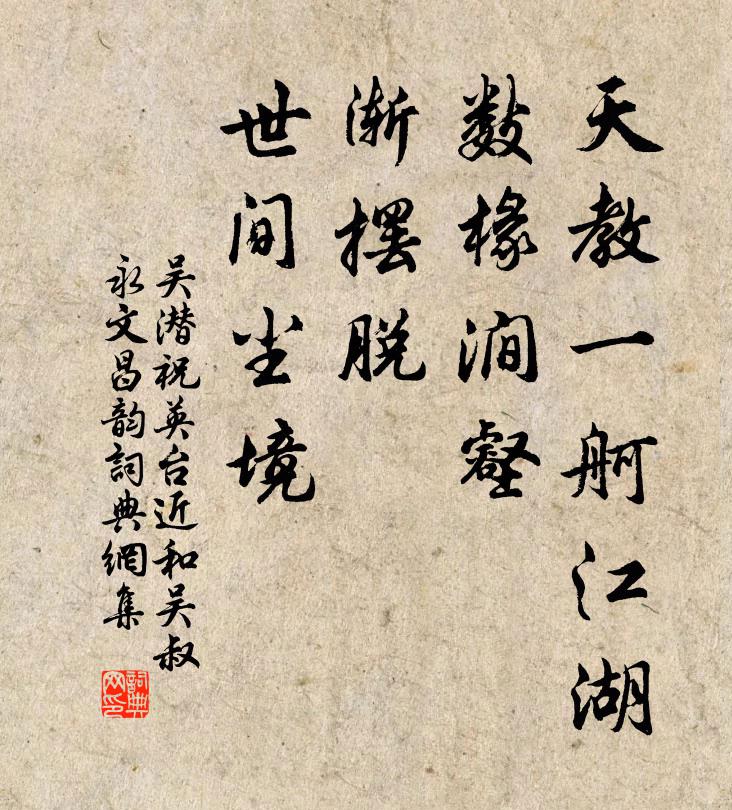 天教一舸江湖
数椽涧壑
渐摆脱
世间尘境
吴潜祝英台近和吴叔
永文昌韵詞典網集
詞典网印